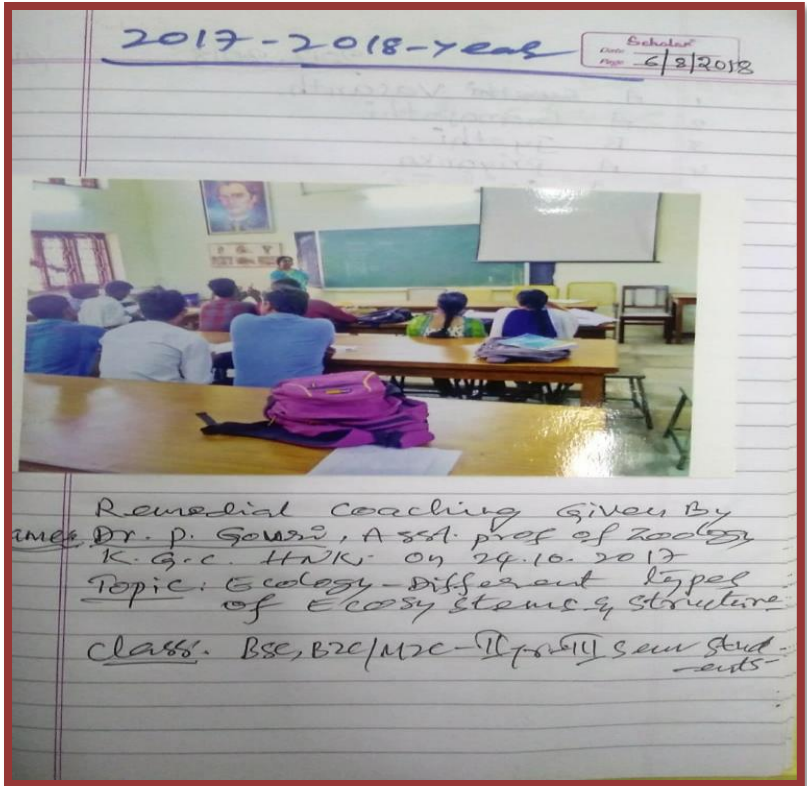 2017-2018-Year
Scholar
Date
Page 6/8/2018
Remedial Coaching Given By
Name: Dr. P. Gouri, Asst. prof of Zoology
K.G.C. HNK. on 24.10.2017
Topic: Ecology-Different types
of Ecosystems & structure
Class: BSC, BZC/MZC-II yr-III Sem Stud-
-ents-